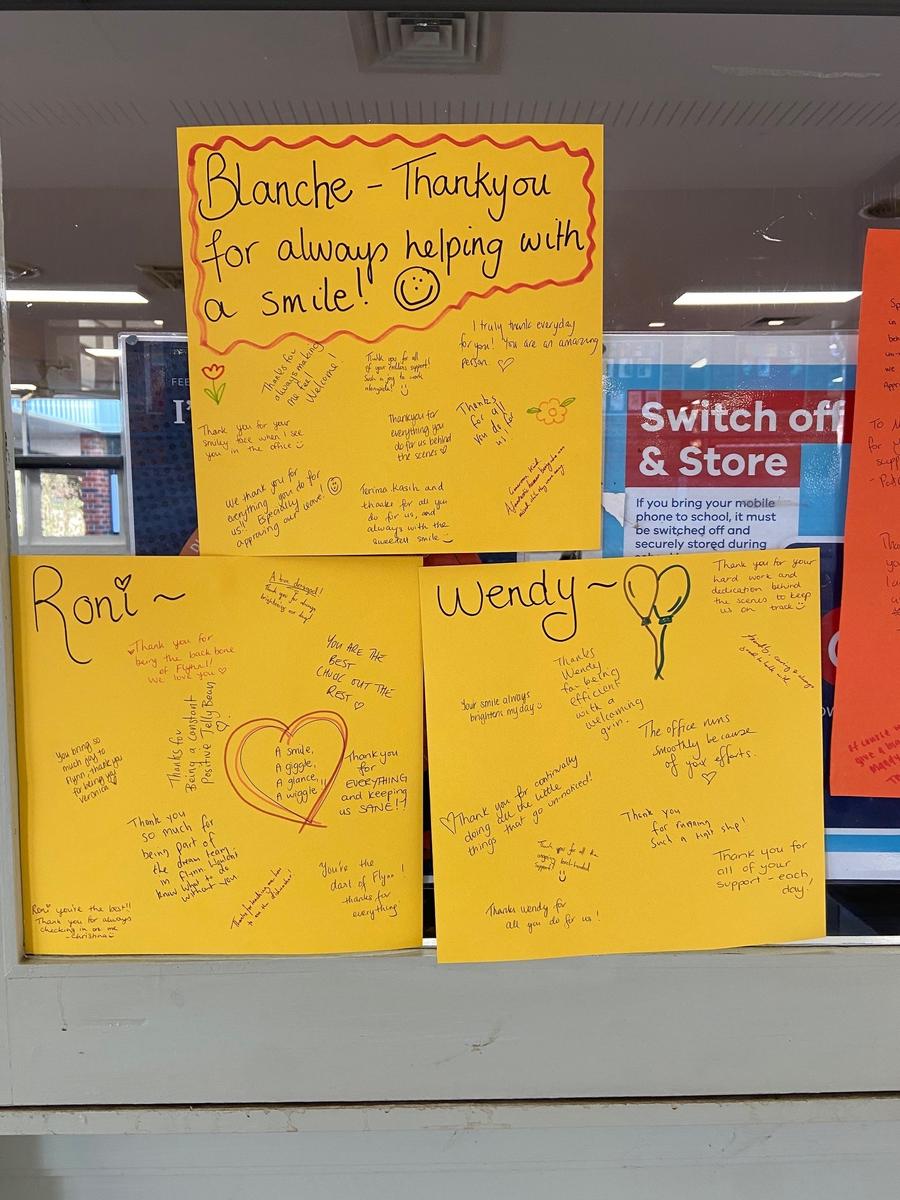 Blanche - Thankyou
for always helping with
a smile!
I truly thank everyday
for you! You are an amazing
person.
Thanks for
always making
me feel
Welcome!
Thank you for all
of your endless support!
Such a joy to work
alongside!
Thank you for your
smiley face when I see
you in the office
Thankyou for
everything you
do for us behind
the scenes
Thanks
for all
you do for
us!
We thank you for
everything you do for
us!! Especially
approving our leave!
Terima Kasih and
thanks for all you
do for us, and
always with the
sweetest smile
Roni ~
Thank you for always
brightening our day!
Thank you for
being the back bone
of Flynn!!
We love you
YOU ARE THE
BEST
CHUCK OUT THE
REST
Thanks for
Being a constant
Positive Jelly Bean
You bring so
much joy to
Flynn, thank you
for being you!
Veronica
A smile,
A giggle,
A glance,
A wiggle!!
Thank you
for
EVERYTHING
and keeping
us SANE!!
Thank you
so much for
being part of
the dream team
in Flynn. Wouldnt
know what to do
without you
You're the
best of Flynn!
thanks for
everything!
Roni you're the best!!
Thank you for always
checking in on me
-Christina
Wendy ~
Thank you for your
hard work and
dedication behind
the scenes to keep
us on track
Your smile always
brightens my day
Thanks
Wendy
for being
efficient
with a
welcoming
grin.
The office runs
smoothly because
of your efforts.
Thank you for continually
doing all the little
things that go un-noticed!
Thank you
for running
such a tight ship!
Thank you for
all of your
support - each
day!
Thanks Wendy for
all you do for us!
Switch off
& Store
If you bring your mobile
phone to school, it must
be switched off and
securely stored during